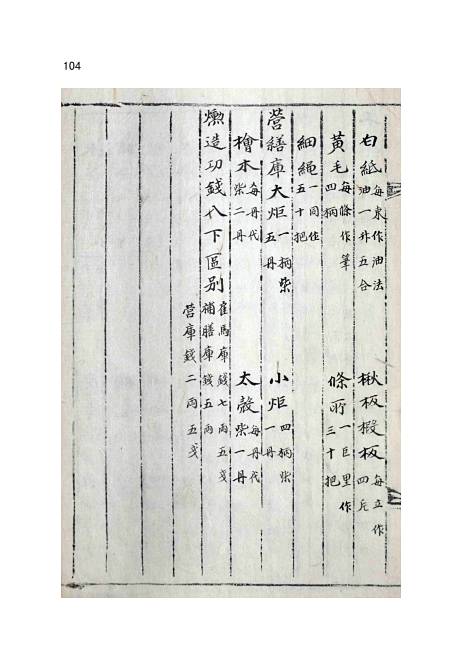 104
白紙 每束作油法 油一升五合 楸板椴板 每立作 四斤
黃毛 每條作筆 四柄 條所 一巨里作 三十把
細繩 一同佳 五十把
營繕庫大炬 一柄柴 五丹 小炬 四柄柴 一丹
檜木 每丹代 柴二丹 太殼 每丹代 柴一丹
爑造功錢代下區別 雇馬庫錢七兩五戔 補膳庫錢五兩
營庫錢二兩五戔